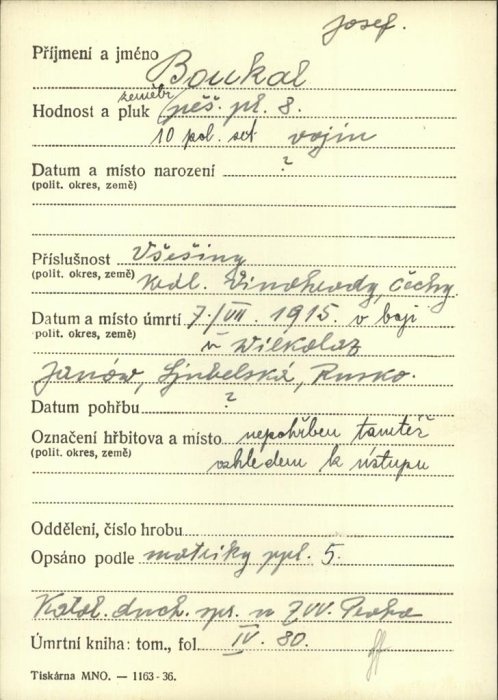 Josef.
Příjmení a jméno Boukal
zeměbr.
Hodnost a pluk pěš. pl. 8.
10 pol. set vojín
Datum a místo narození ?
(polit. okres, země)
Příslušnost Všešiny
(polit. okres, země) Král. Vinohrady, Čechy
Datum a místo úmrtí 7./VII. 1915. v boji
polit. okres, země) u Wilkolaz
Janów, Ljubelská, Rusko.
Datum pohřbu ?
Označení hřbitova a místo nepohřben tamtéž
(polit. okres, země) vzhledem k ústupu
Oddělení, číslo hrobu
Opsáno podle matriky ppl. 5.
Katol. duch. spr. u ZVV. Praha
Úmrtní kniha: tom., fol. IV. 80.
Tiskárna MNO. — 1163-36.